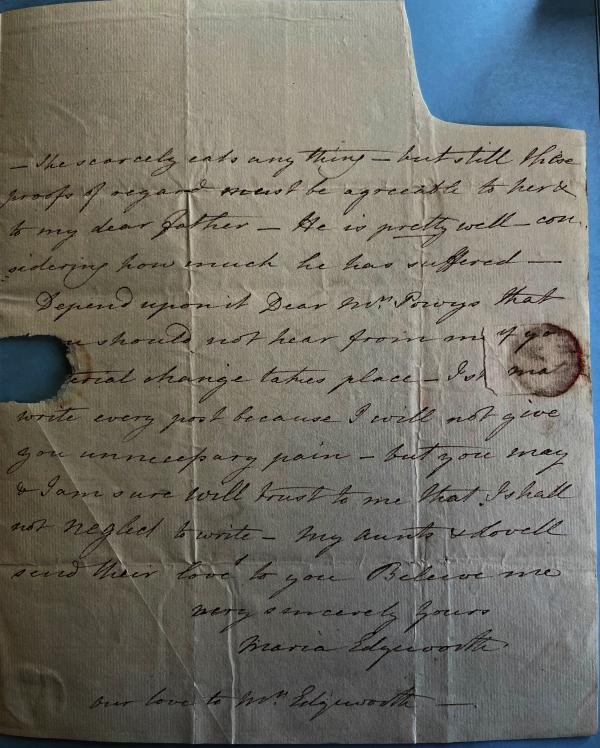 — She scarcely eats any thing — but still these
proofs of regard must be agreeable to her &
to my dear father — He is pretty well — con
sidering how much he has suffered —
Depend upon it Dear Mrs. Powys that
should not hear from me if
change takes place — I
write every post because I will not give
you unnecessary pain — but you may
& I am sure will trust to me that I shall
not neglect to write — My aunts & Lovell
send their love to you Believe me
very sincerely yours
Maria Edgeworth
our love to Mrs. Edgeworth —